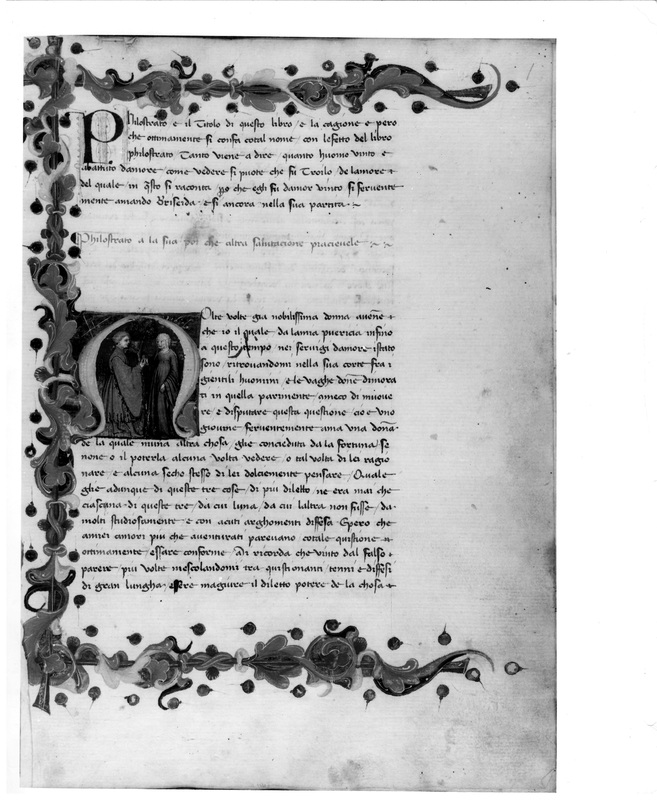 Philostrato e il Titolo di questo libro / e la cagione e pero
che ottimamente si confa cotal nome con lefetto del libro
philostrato Tanto viene a dire quanto huomo vinto e
abattuto damore come vedere si puote che fu Troilo de lamore
del quale in q̄sto si raconta po che egli fu damor vinto si fervente
mente amando Briseida e si ancora nella sua partita
Philostrato a la sua piu che altra salutacione piacievele
Olte volte gia nobilissima donna avene
che io il quale da la mia puericia infino
a questo tempo nei servigi damore istato
sono / ritrovandomi nella sua corte fra i
gientili huomini e le vaghe done dimora
ti in quella parimente meco di muove
re e disputare questa questione cio e uno
giovine ferventemente ama una dona
de la quale niuna altra chosa glie conciedutа da la fortuna se
none o il poterla alcuna volta vedere o tal volta di lei ragio
nare e alcuna secho stesso di lei dolciemente pensare / Quale
glie adunque di queste tre cose di piu diletto ne era mai che
ciascuna di queste tre / da cui luna / da cui laltra non fusse / da
molti studiosamente e con acuti arghomenti difesa Epero che
amiei amori piu che aventurati parevano cotale quistione
ottimamente essere conforme Mi ricorda che vinto dal falso
parere piu volte mescolandomi tra quistionanti tenni e diffesi
di gran lungha essere magiure il diletto potere de la chosa